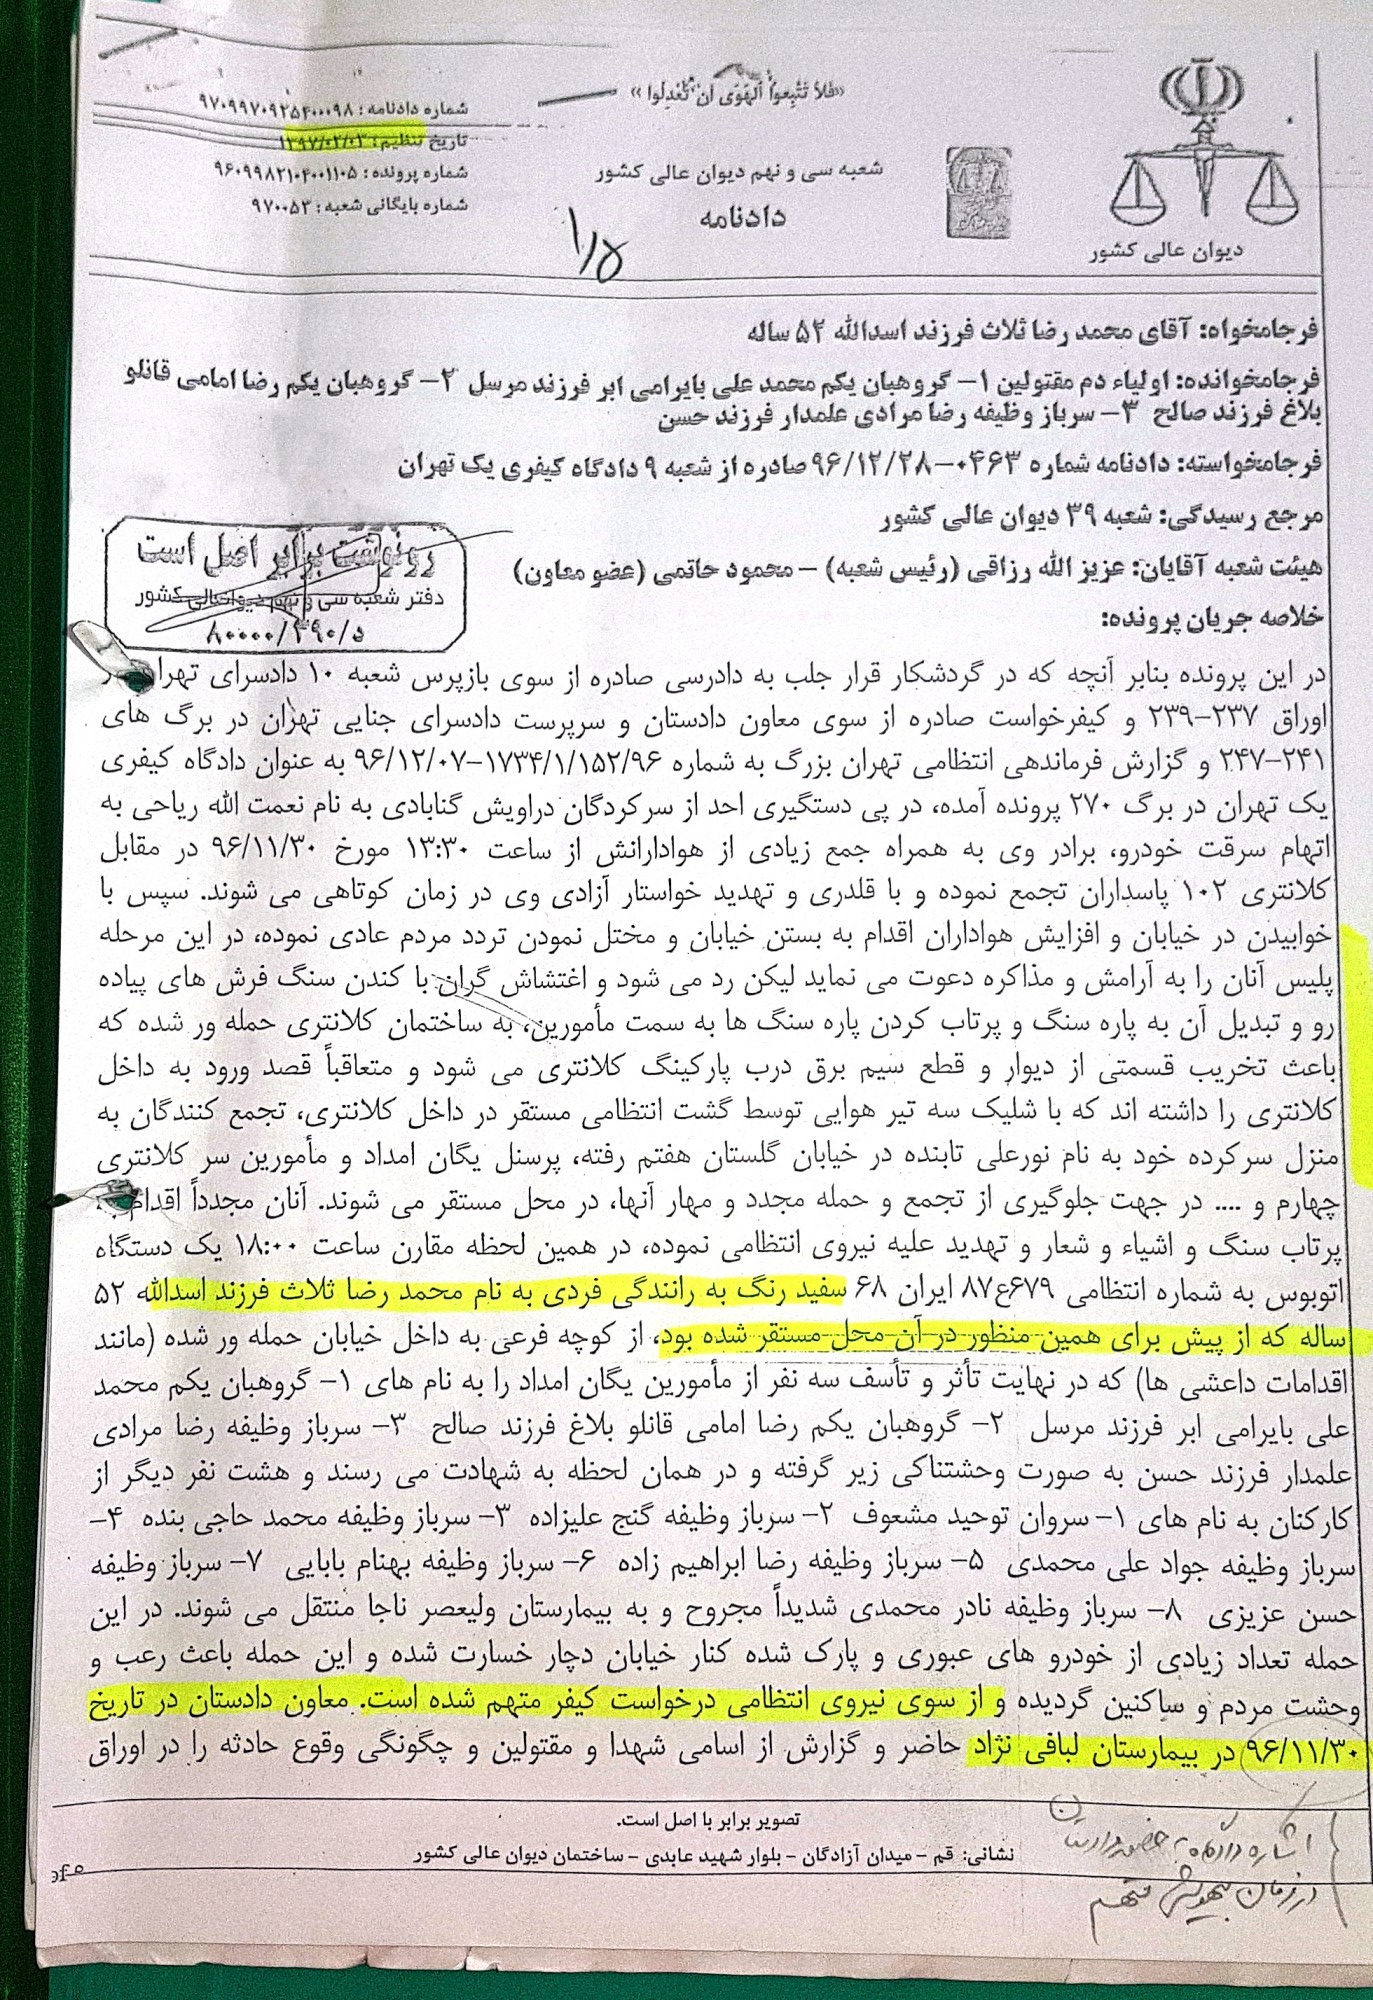 «فَلاَ تَتَّبِعُواْ الْهَوَى أَن تَعْدِلُواْ»
شماره دادنامه : ۹۷۰۹۹۷۰۹۲۵۴۰۰۰۹۸
تاریخ تنظیم: ۱۳۹۷/۰۲/۰۳
شماره پرونده : ۹۶۰۹۹۸۲۱۰۴۰۰۱۱۰۵
شماره بایگانی شعبه : ۹۷۰۰۵۳
شعبه سی و نهم دیوان عالی کشور
دادنامه
دیوان عالی کشور
۱/۵
فرجامخواه: آقای محمد رضا ثلاث فرزند اسدالله ۵۲ ساله
فرجامخوانده: اولیاء دم مقتولین ۱- گروهبان یکم محمد علی بایرامی ابر فرزند مرسل ۲- گروهبان یکم رضا امامی قانلو
بلاغ فرزند صالح ۳- سرباز وظیفه رضا مرادی علمدار فرزند حسن
فرجامخواسته: دادنامه شماره ۰۴۶۳-۹۶/۱۲/۲۸ صادره از شعبه ۹ دادگاه کیفری یک تهران
مرجع رسیدگی: شعبه ۳۹ دیوان عالی کشور
هیئت شعبه آقایان: عزیز الله رزاقی (رئیس شعبه) - محمود حاتمی (عضو معاون)
رونوشت برابر اصل است
دفتر شعبه سی و نهم دیوانعالی کشور
۸۰۰۰۰/۳۹۰/د
خلاصه جریان پرونده:
در این پرونده بنابر آنچه که در گردشکار قرار جلب به دادرسی صادره از سوی بازپرس شعبه ۱۰ دادسرای
اوراق ۲۳۷-۲۳۹ و کیفرخواست صادره از سوی معاون دادستان و سرپرست دادسرای جنایی تهران در برگ های
۲۴۱-۲۴۷ و گزارش فرماندهی انتظامی تهران بزرگ به شماره ۱۷۳۴/۱/۱۵۲/۹۶-۹۶/۱۲/۰۷ به عنوان دادگاه کیفری
یک تهران در برگ ۲۷۰ پرونده آمده، در پی دستگیری احد از سرکردگان دراویش گنابادی به نام نعمت الله ریاحی به
اتهام سرقت خودرو، برادر وی به همراه جمع زیادی از هوادارانش از ساعت ۱۳:۳۰ مورخ ۹۶/۱۱/۳۰ در مقابل
کلانتری ۱۰۲ پاسداران تجمع نموده و با قلدری و تهدید خواستار آزادی وی در زمان کوتاهی می شوند. سپس با
خوابیدن در خیابان و افزایش هواداران اقدام به بستن خیابان و مختل نمودن تردد مردم عادی نموده، در این مرحله
پلیس آنان را به آرامش و مذاکره دعوت می نماید لیکن رد می شود و اغتشاش گران با کندن سنگ فرش های پیاده
رو و تبدیل آن به پاره سنگ و پرتاب کردن پاره سنگ ها به سمت مأمورین، به ساختمان کلانتری حمله ور شده که
باعث تخریب قسمتی از دیوار و قطع سیم برق درب پارکینگ کلانتری می شود و متعاقباً قصد ورود به داخل
کلانتری را داشته اند که با شلیک سه تیر هوایی توسط گشت انتظامی مستقر در داخل کلانتری، تجمع کنندگان به
منزل سرکرده خود به نام نورعلی تابنده در خیابان گلستان هفتم رفته، پرسنل یگان امداد و مأمورین سر کلانتری
چهارم و .... در جهت جلوگیری از تجمع و حمله مجدد و مهار آنها، در محل مستقر می شوند. آنان مجدداً اقدام
پرتاب سنگ و اشیاء و شعار و تهدید علیه نیروی انتظامی نموده، در همین لحظه مقارن ساعت ۱۸:۰۰ یک دستگاه
اتوبوس به شماره انتظامی ۶۷۹ع۸۷ ایران ۶۸ سفید رنگ به رانندگی فردی به نام محمد رضا ثلاث فرزند اسدالله ۵۲
ساله که از پیش برای همین منظور در آن محل مستقر شده بود، از کوچه فرعی به داخل خیابان حمله ور شده (مانند
اقدامات داعشی ها) که در نهایت تأثر و تأسف سه نفر از مأمورین یگان امداد را به نام های ۱- گروهبان یکم محمد
علی بایرامی ابر فرزند مرسل ۲- گروهبان یکم رضا امامی قانلو بلاغ فرزند صالح ۳- سرباز وظیفه رضا مرادی
علمدار فرزند حسن به صورت وحشتناکی زیر گرفته و در همان لحظه به شهادت می رسند و هشت نفر دیگر از
کارکنان به نام های ۱- سروان توحید مشعوف ۲- سرباز وظیفه گنج علیزاده ۳- سرباز وظیفه محمد حاجی بنده ۴-
سرباز وظیفه جواد علی محمدی ۵- سرباز وظیفه رضا ابراهیم زاده ۶- سرباز وظیفه بهنام بابایی ۷- سرباز وظیفه
حسن عزیزی ۸- سرباز وظیفه نادر محمدی شدیداً مجروح و به بیمارستان ولیعصر ناجا منتقل می شوند. در این
حمله تعداد زیادی از خودرو های عبوری و پارک شده کنار خیابان دچار خسارت شده و این حمله باعث رعب و
وحشت مردم و ساکنین گردیده و از سوی نیروی انتظامی درخواست کیفر متهم شده است. معاون دادستان در تاریخ
۹۶/۱۱/۳۰ در بیمارستان لبافی نژاد حاضر و گزارش از اسامی شهدا و مقتولین و چگونگی وقوع حادثه را در اوراق
تصویر برابر با اصل است.
نشانی: قم - میدان آزادگان - بلوار شهید عابدی - ساختمان دیوان عالی کشور
اشاره دادگاه به حضور دادستان
در زمان بیهوشی متهم